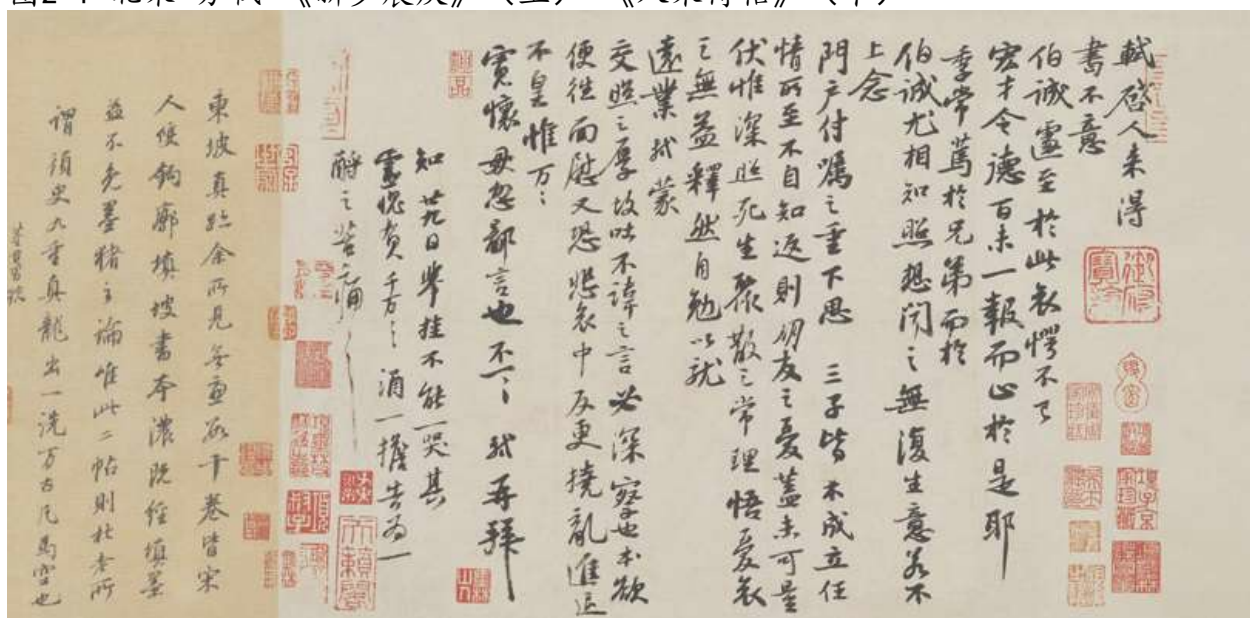 軾啓人来得
書不意
伯誠遽至於此哀愕不已
宏才令德百未一報而止於是耶
季常篤於兄弟而於
伯誠尤相知照想聞之無復生意若不
上念
門户付囑之重下思三子皆不成立任
情所至不自知返則朋友之憂蓋未可量
伏惟深照死生聚散之常理悟憂哀
之無益釋然自勉以就
遠業軾蒙
交照之厚故吐不諱之言必深察也本欲
便往面慰又恐悲哀中反更撓亂進退
不皇惟万〻
寛懷毋忽鄙言也不一〻軾再拜
知廿九日舉挂不能一哭其
靈愧負千万〻酒一擔告為一
酹之苦痛〻
神品
東坡真跡余所見無慮數十卷皆宋
人雙鉤廓填坡書本濃既經填墨
益不免墨豬之論唯此二帖則杜老所
謂須臾九重真龍出一洗万古凡馬空也
董其昌跋